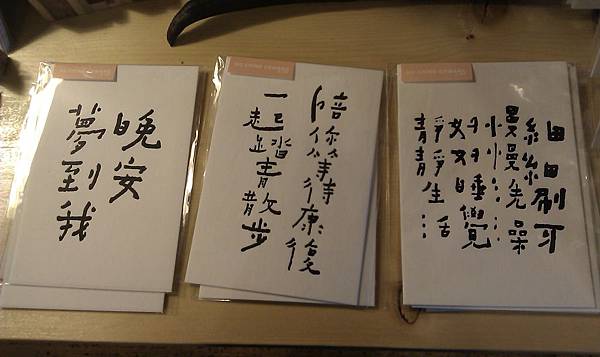 晚安
夢到我
陪你等待康復
一起踏青散步
細細刷牙
慢慢洗澡
好好睡覺
靜靜生活